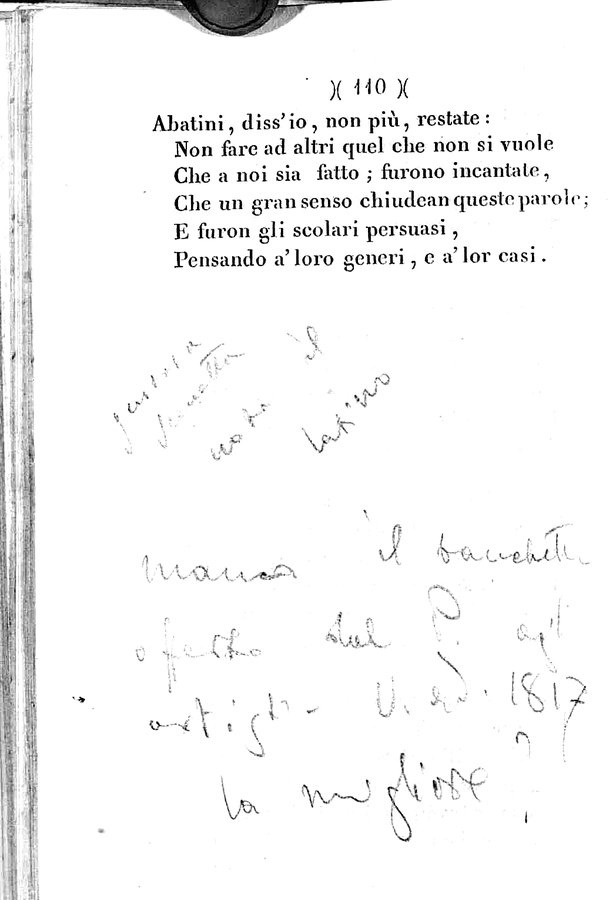 )( 110 )(
Abatini, diss'io, non più, restate:
Non fare ad altri quel che non si vuole
Che a noi sia fatto; furono incantate,
Che un gran senso chiudean queste parole;
E furon gli scolari persuasi,
Pensando a' loro generi, e a' lor casi.
il
latino
manca il banchetto
offerto dal P. agli
artigi- V. ed. 1817
la migliore ?